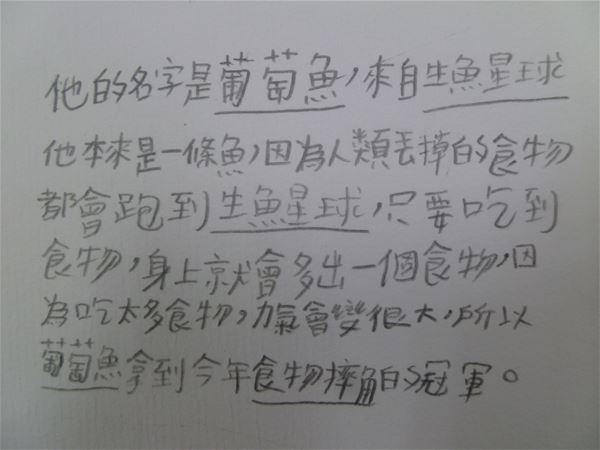 他的名字是葡萄魚，來自生魚星球
他本來是一條魚，因為人類丟掉的食物
都會跑到生魚星球，只要吃到
食物，身上就會多出一個食物，因
為吃太多食物，力氣會變很大，所以
葡萄魚拿到今年食物摔角的冠軍。